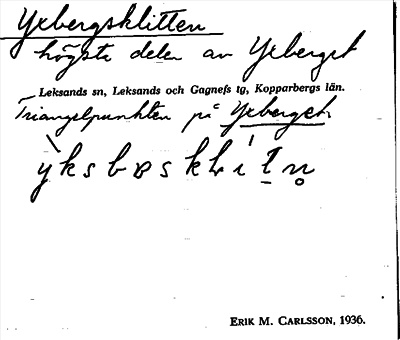 Yxbergsklitten
högsta delen av Yxberget
Leksands sn, Leksands och Gagnefs tg, Kopparbergs län.
Triangelpunkten på Yxberget.
ERIK M. CARLSSON, 1936.